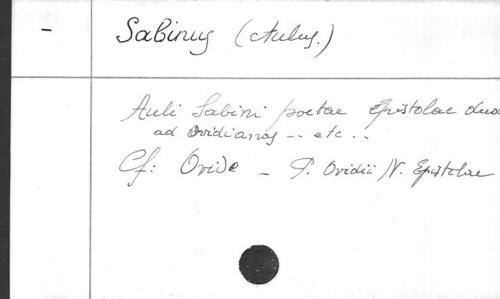 - Sabinus (Aulus.)
Auli Sabini poetae Epistolae duae
ad Ovidianas -- etc..
Cf: Ovide - P. Ovidii N. Epistolae